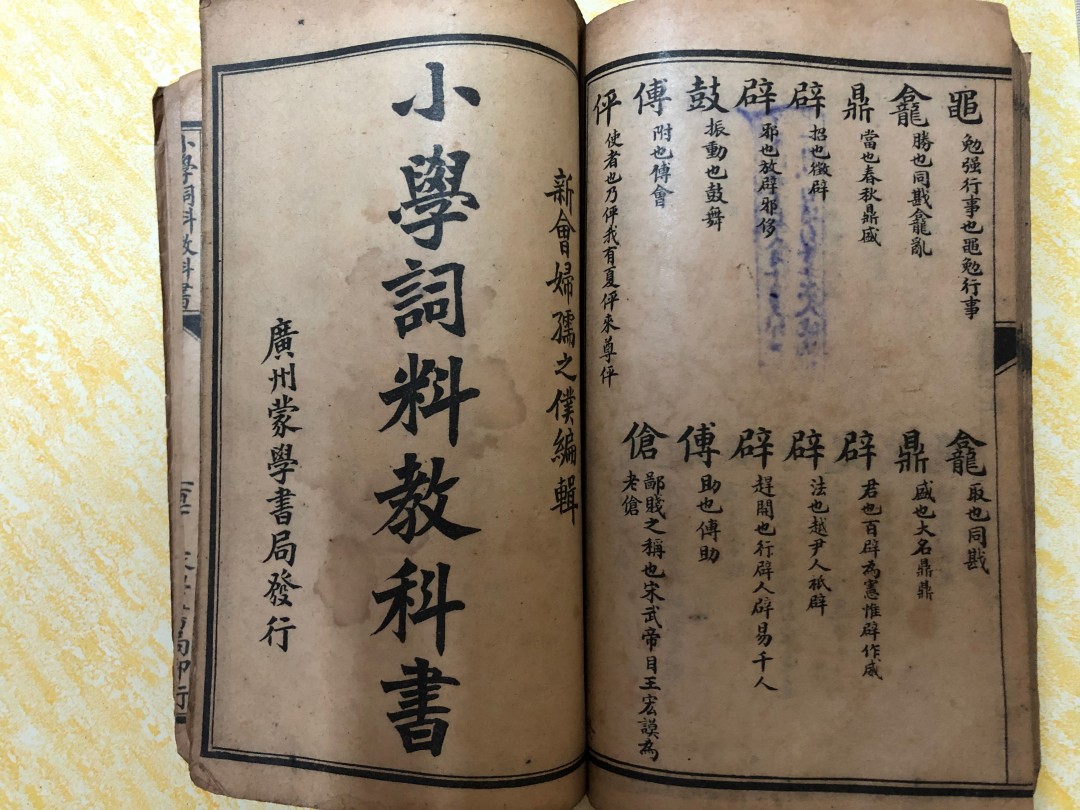 黽 勉强行事也黽勉行事
龕 取也同戡
龕 勝也同戡龕亂
鼎 盛也大名鼎鼎
鼎 當也春秋鼎盛
辟 君也百辟為憲惟辟作威
辟 招也徵辟
辟 法也越尹人祇辟
辟 邪也放辟邪侈
辟 趕開也行辟人辟易千人
鼓 振動也鼓舞
傅 助也傅助
傅 附也傅會
傖 鄙賤之稱也宋武帝目王宏謨為
老傖
伻 使者也乃伻我有夏伻來尊伻
新會婦孺之僕編輯
小學詞料教科書
廣州蒙學書局發行
小學詞料教科書